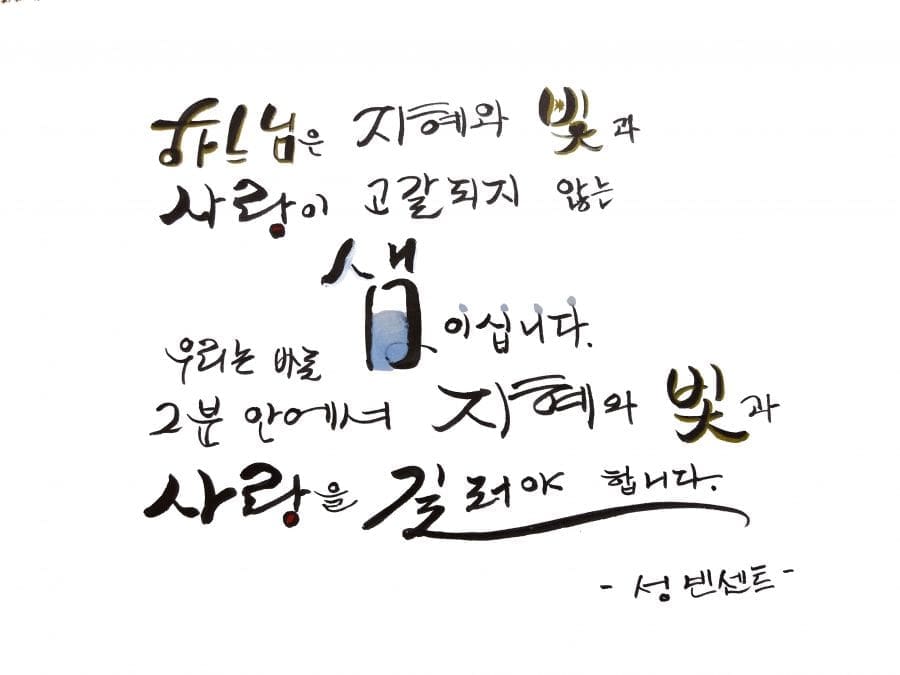 하느님은 지혜와 빛과
사랑이 고갈되지 않는
샘이십니다.
우리는 바로
그분 안에서 지혜와 빛과
사랑을 길러야 합니다.
- 성 빈센트 -